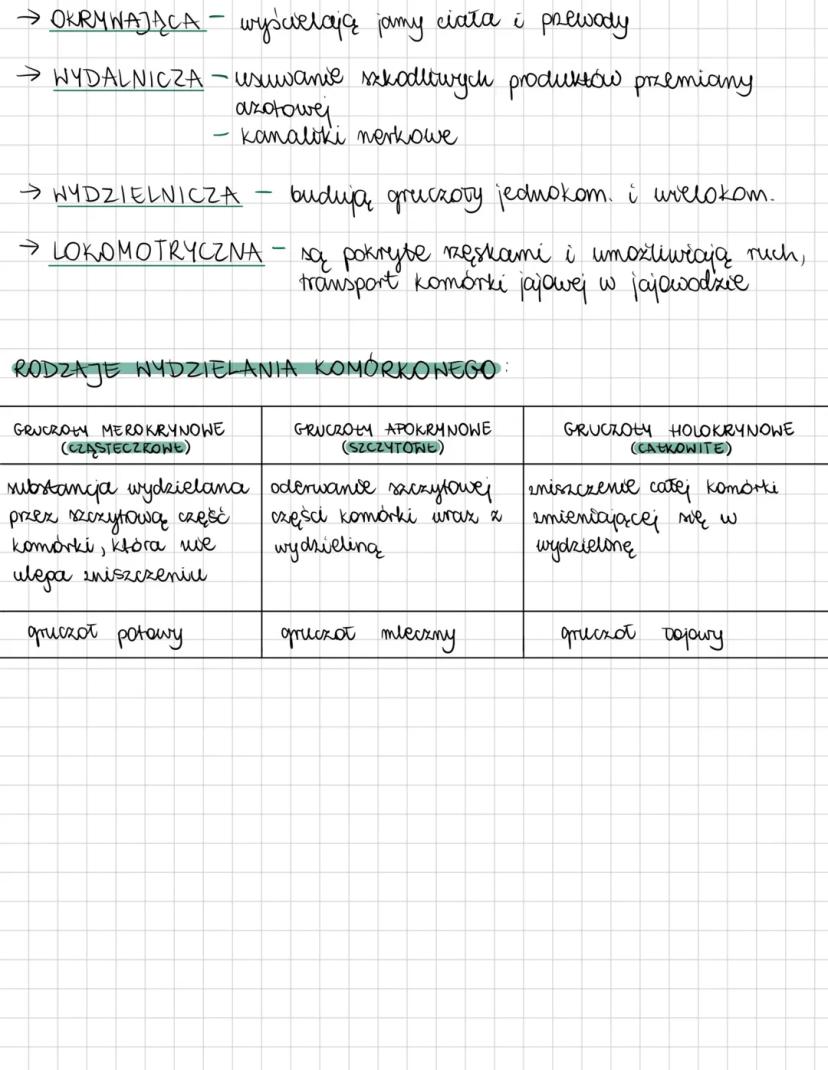 → OKRYWAJĄCA - wyścielają jamy ciała i przewody
→ WYDALNICZA - usuwanie szkodliwych produktów przemiany
azotowej
- kanaliki nerkowe
→ WYDZIELNICZA - budują gruczoły jednokom. i wielokom.
→ LOKOMOTRYCZNA - są pokryte rzęskami i umożliwiają ruch,
transport komórki jajowej w jajowodzie
RODZAJE WYDZIELANIA KOMÓRKOWEGO:
GRUCZOŁY MEROKRYNOWE
(CZĄSTECZKOWE)
GRUCZOŁY APOKRYNOWE
(SZCZYTOWE)
GRUCZOŁY HOLOKRYNOWE
(CAŁKOWITE)
substancja wydzielana
przez szczytową część
komórki, która nie
ulega zniszczeniu
oderwanie szczytowej
części komórki wraz z
wydzieliną
zniszczenie całej komórki
zmieniającej się w
wydzielinę
gruczoł potowy
gruczoł mleczny
gruczoł łojowy